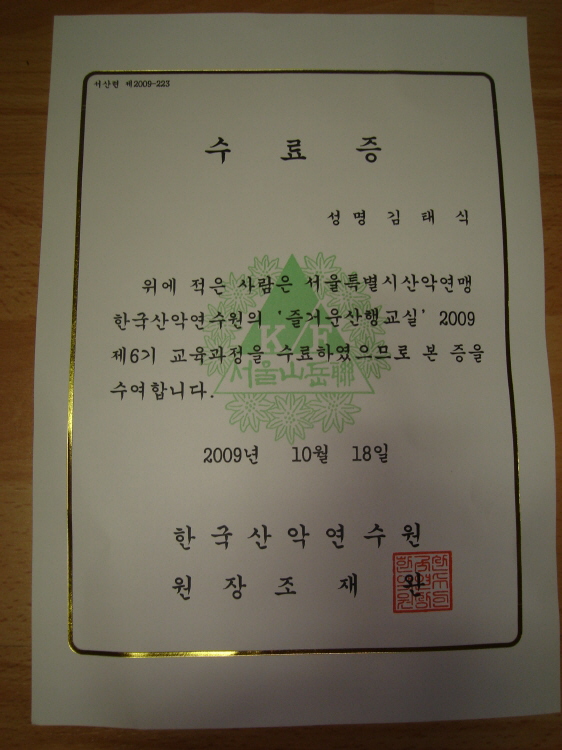 서산현 제2009-223
수 료 증
성 명 김 태 식
위에 적은 사람은 서울특별시산악연맹
한국산악연수원의 '즐거운산행교실' 2009
제6기 교육과정을 수료하였으므로 본 증을
수여합니다.
K/F
서울山岳聯
2009년 10월 18일
한 국 산 악 연 수 원
원 장 조 재 완